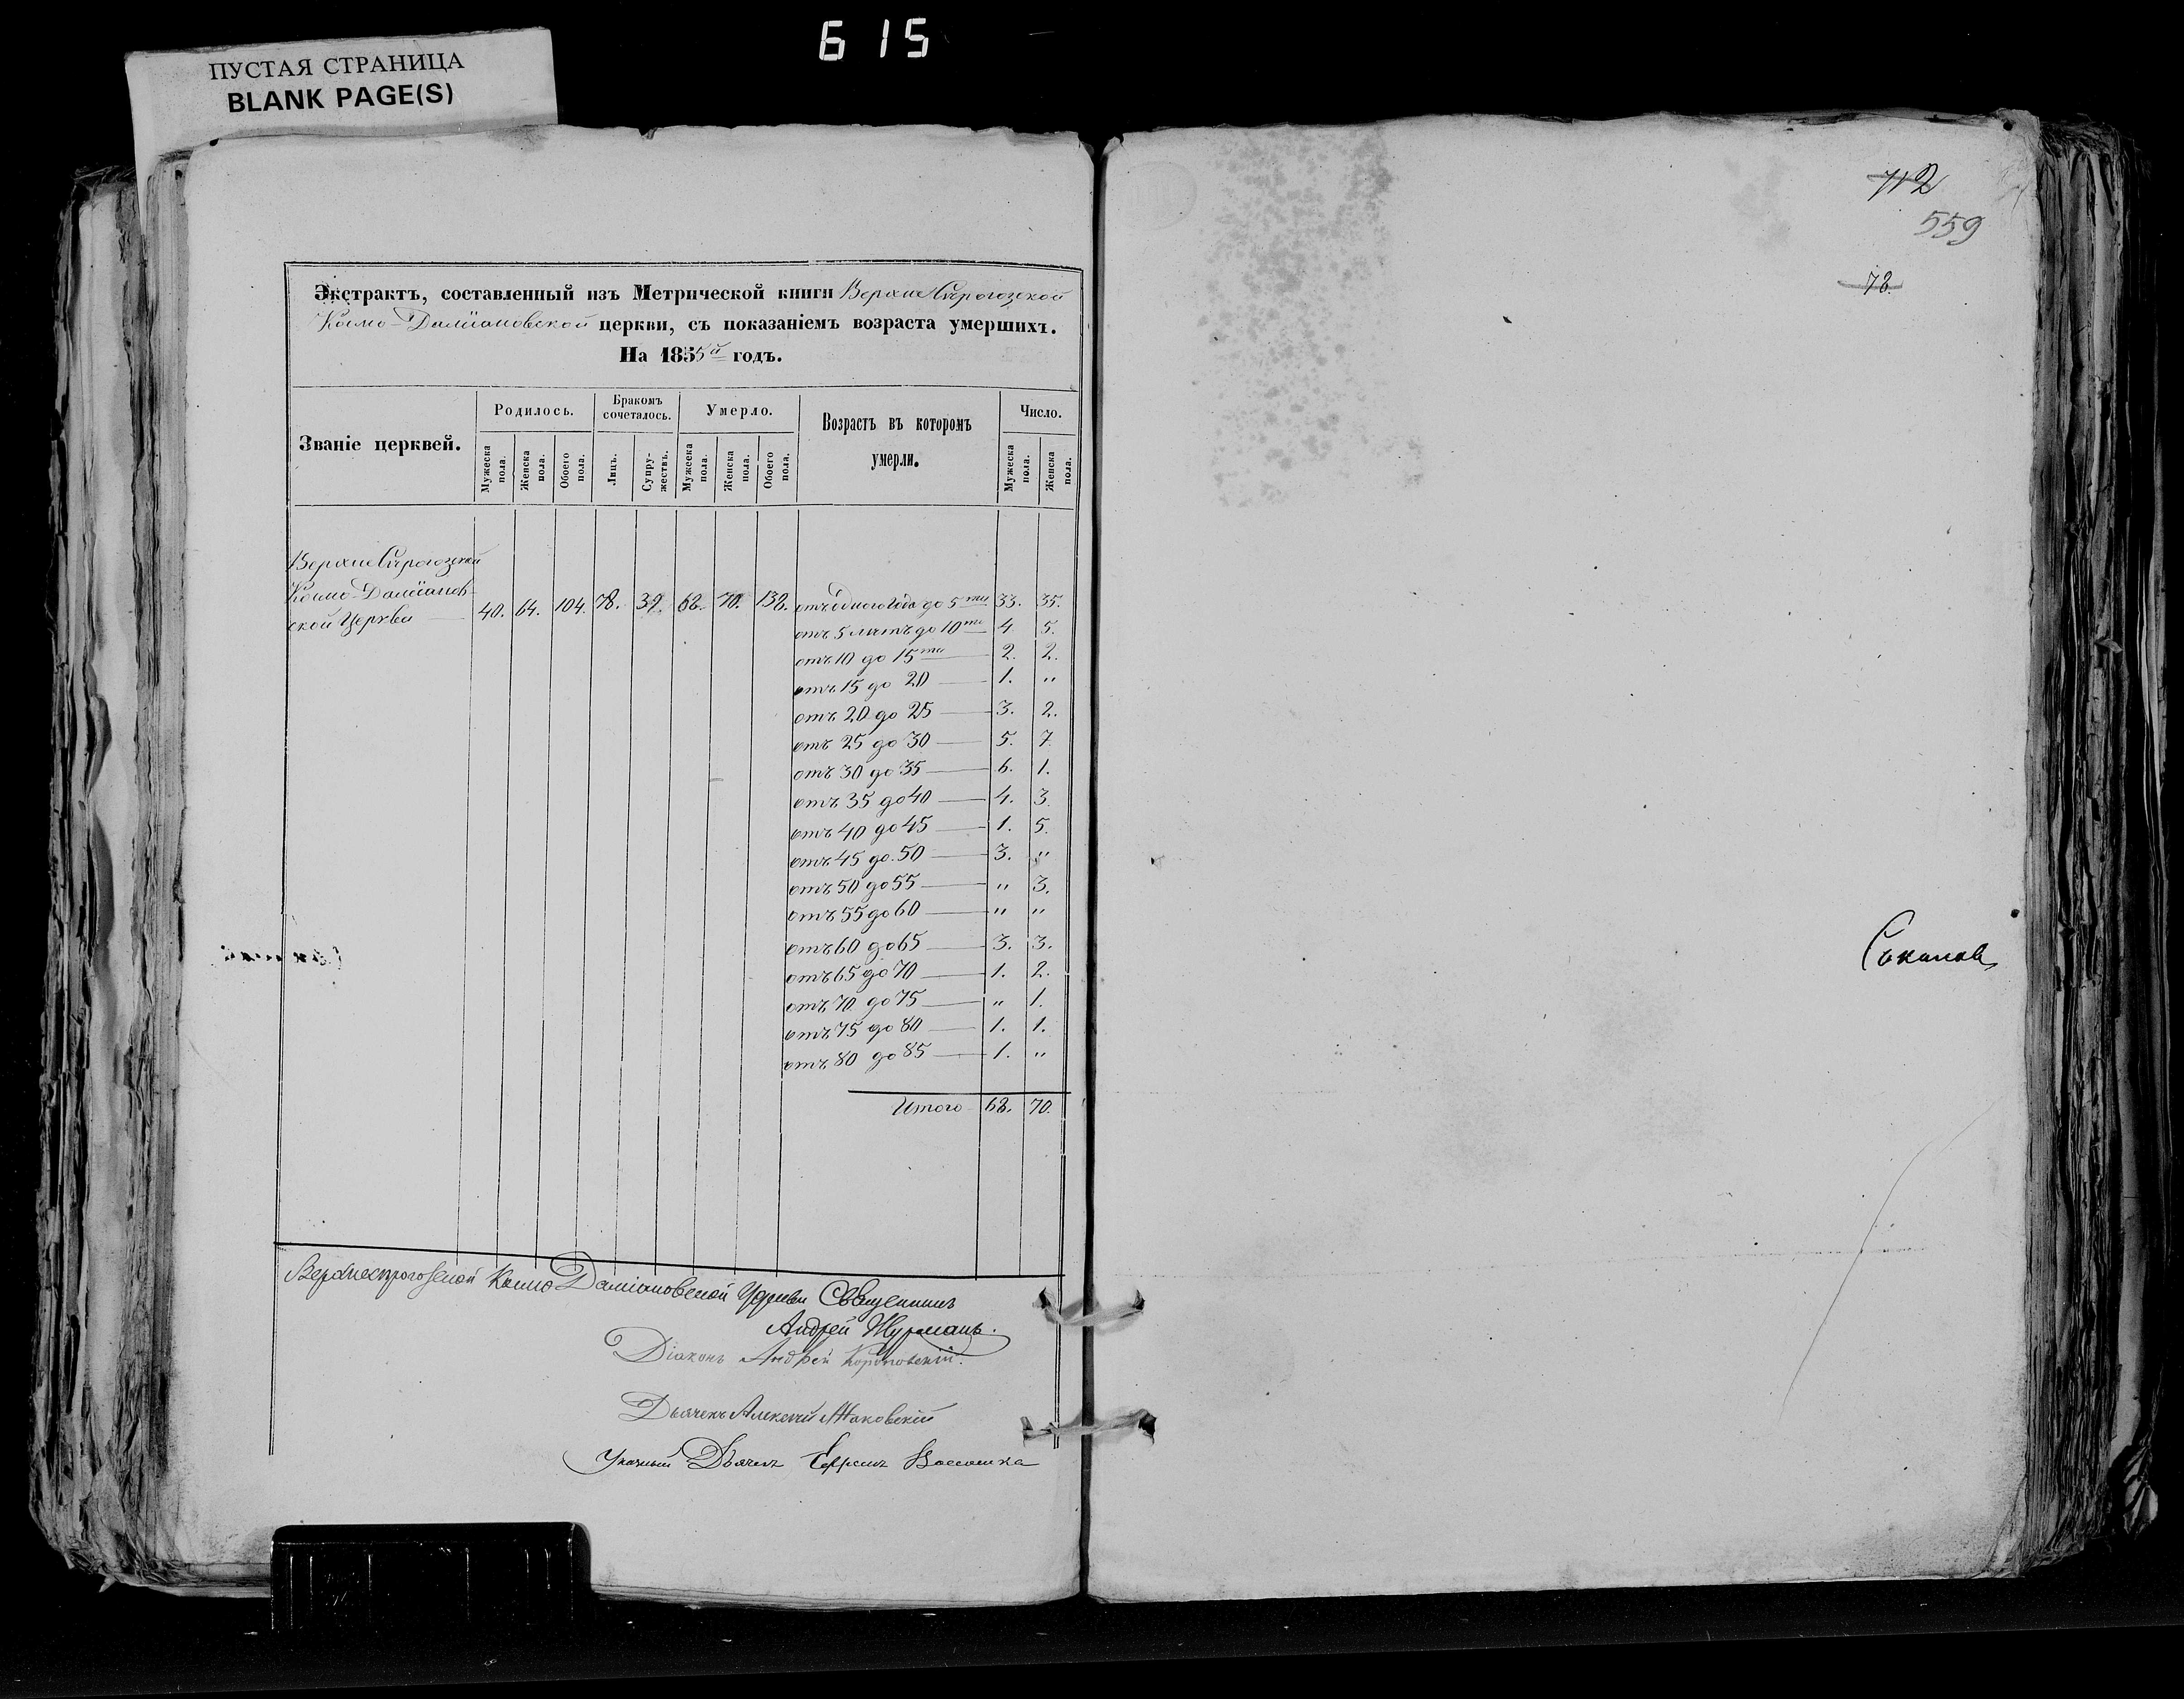 615
ПУСТАЯ СТРАНИЦА
BLANK PAGE(S)
Экстрактъ, составленный изъ Метрической книги Верхне Сѣрогозской
Космо-Даміановской церкви, съ показаніемъ возраста умершихъ.
На 1855й годъ.
Званіе церквей.
Родилось.
Бракомъ сочеталось.
Умерло.
Возрастъ въ которомъ умерли.
Число.
Мужеска пола.
Женска пола.
Обоего пола.
Лицъ.
Супружествъ.
Мужеска пола.
Женска пола.
Обоего пола.
Мужеска пола.
Женска пола.
Верхне Сѣрогозской
Космо-Даміанов-
ской Церкви 40. 64. 104. 78. 39. 68. 70. 138. отъ одного года до 5ти 33. 35.
отъ 5 лѣтъ до 10ти 4. 5.
отъ 10 до 15ти 2. 2.
отъ 15 до 20 1. "
отъ 20 до 25 3. 2.
отъ 25 до 30 5. 7.
отъ 30 до 35 6. 1.
отъ 35 до 40 4. 3.
отъ 40 до 45 1. 5.
отъ 45 до 50 3. "
отъ 50 до 55 " 3.
отъ 55 до 60 " "
отъ 60 до 65 3. 3.
отъ 65 до 70 1. 2.
отъ 70 до 75 " 1.
отъ 75 до 80 1. 1.
отъ 80 до 85 1. "
Итого 68. 70.
Верхнесѣрогозской Космо Даміановской Церкви Священникъ
Андрей
Діаконъ Андрей
Дьячекъ Алексѣй Маковскій
Указный Дьячекъ Ефремъ
712
559
78.